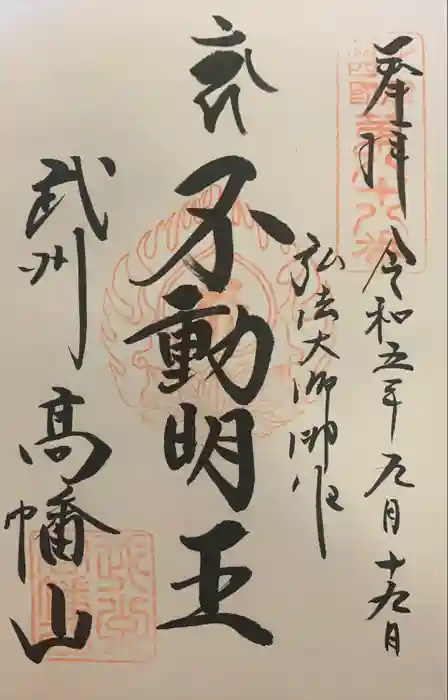 奉拝
令和五年九月十九日
弘法大師作
不動明王
武州 高幡山